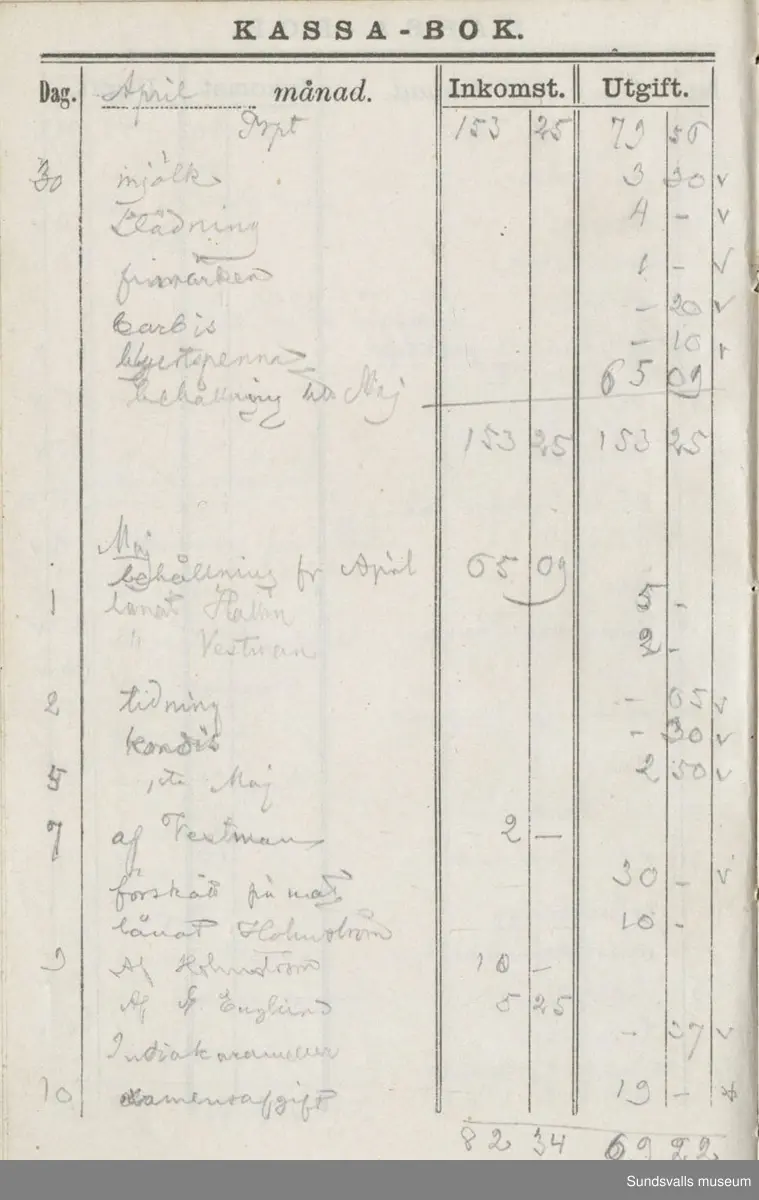 KASSA-BOK.
Dag. April månad. Inkomst. Utgift.
Trpt 153 25 79 56
30 mjölk 3 30 v
Städning 4 - v
frimärken 1 - v
- 20 v
blyertspenna - 10 v
behållning till Maj 65 09
153 25 153 25
Maj
behållning fr April 65 09
1 lånat Hallin 5 -
" Vestman 2 -
2 tidning - 05 v
kondis - 30 v
5 1sta Maj 2 50 v
7 af Vestman 2 —
förskott på mat 30 - v
lånat Holmström 10 -
9 Af Holmström 10 -
Af Englund 5 25
Indiakarameller - 37 v
10 examensafgift 19 -
82 34 69 22
Sundsvalls museum